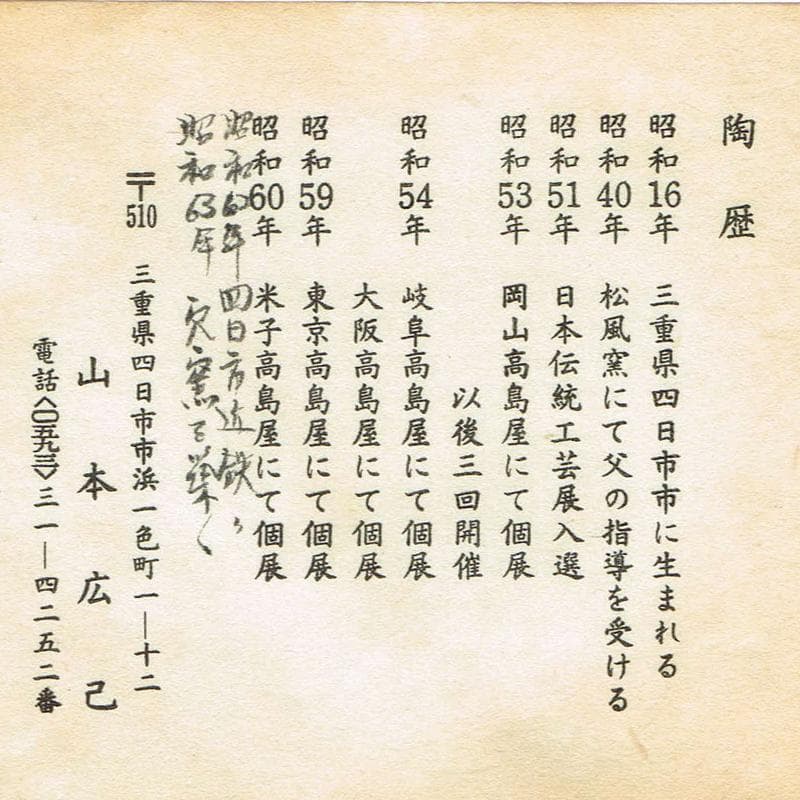 陶歴
昭和16年 三重県四日市市に生まれる
昭和40年 松風窯にて父の指導を受ける
昭和51年 日本伝統工芸展入選
昭和53年 岡山高島屋にて個展
以後三回開催
昭和54年 岐阜高島屋にて個展
大阪高島屋にて個展
昭和59年 東京高島屋にて個展
昭和60年 米子高島屋にて個展
昭和62年 四日市近鉄〃
昭和63年 穴窯を築く
〒510 三重県四日市市浜一色町一―十二
山本広己
電話〈〇五九三〉三一―四二五二番